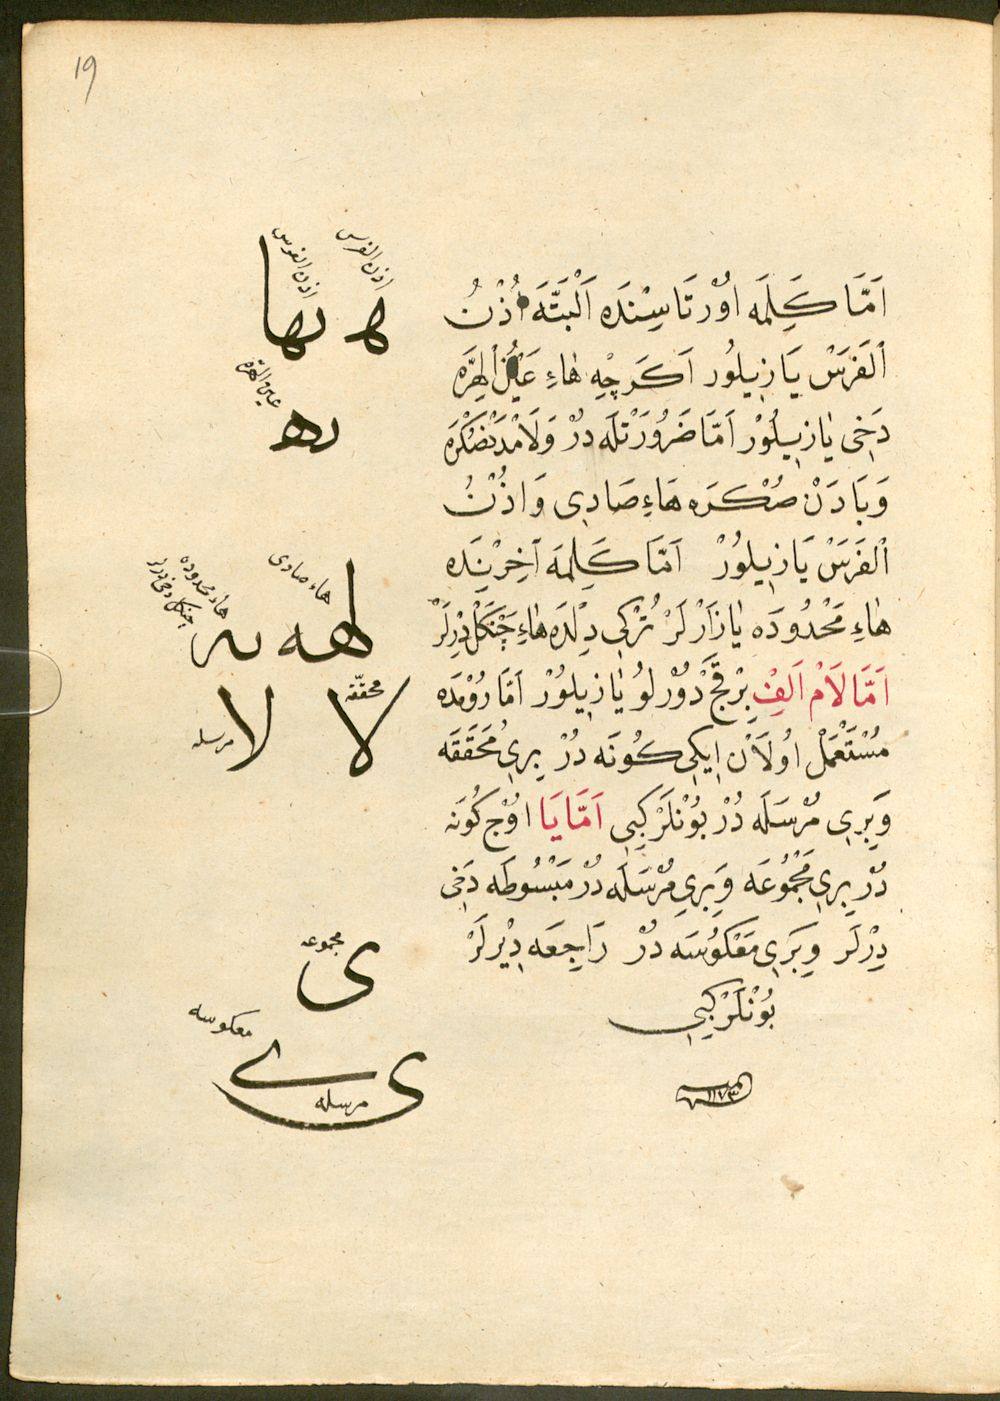 19
اَمَّا كَلِمَه اوُرْتَاسِنْدَه اَلْبَتَّه اُذْنُ
اَلْفَرَسْ يَازِيلُور اَكَرچِه هَاءِ عَيْنُ الْهِرَّه
دَخِى يَازِيلُوْر اَمَّا ضَرُورَتْلَه دُرْ وَلَامْدَنْصُكْرَه
وَبَادَنْ صُكْرَه هَاءِ صَادِى وَاذُنُ
اْلفَرَسْ يَازِيلُوْر اَمَّا كَلِمَه آخِرِنْدَه
هَاءِ مَحْدُودَه يَازَرْلَرْ تُرْكِى دِلْدَه هَاءِ چَنْكَلْ دِرْلَرْ
اَمَّا لَامْ اَلَفِ بِرْقَچْ دُوْرْلوُ يَازِيلُوْر اَمَّا رُوْمْدَه
مُسْتَعْمَلْ اوُلَانْ اِيكِى كُونَه دُرْ بِرِى مُحَقَّقَه
وَبِرِى مُرْسَلَه دُرْ بُوْنْلَرْ كِبِى اَمَّا يَا اوُچْ كُونَه
دُرْ بِرِى مَجْمُوعَه وَبِرِى مُرْسَلَه دُرْ مَبْسُوطَه دَخِى
دِرْلَر وَبِرِى مَعْكُوسَه دُرْ رَاجِعَه دِيْرلَرْ
بُوْنْلَرْ كِبِى
١١٧٣
اذن الفرس
اذن الفرس
ه بها
عين الهره
به
هاء صادى
هاء محدوده
چنكل دخى ديرلر
لهه به
محققه
مرسله
لا لا
مجموعه
ى
معكوسه
ى ے
مرسله